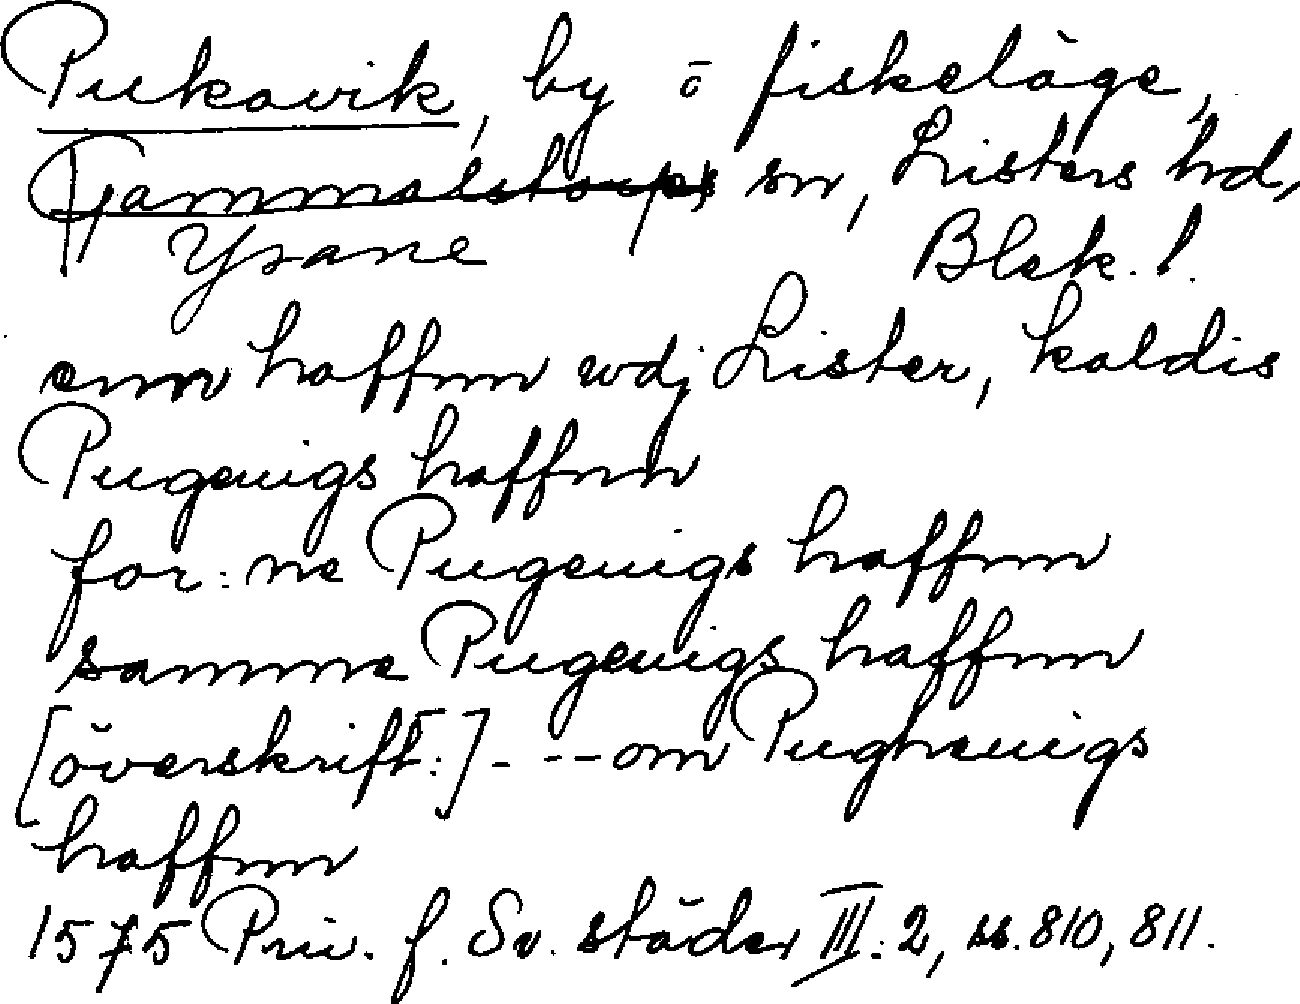 Pukavik, by o fiskeläge,
Gammalstorps sn, Listers hd,
Ysane Blek. l.
enn haffnn wdj Lister, kaldis
Pugeuigs haffnn
for: ne Pugeuigs haffnn
samme Pugeuigs haffnn
[överskrift:] - - - om Pugheuigs
haffnn
1575 Priv. f. Sv. städer III: 2, ss. 810, 811.